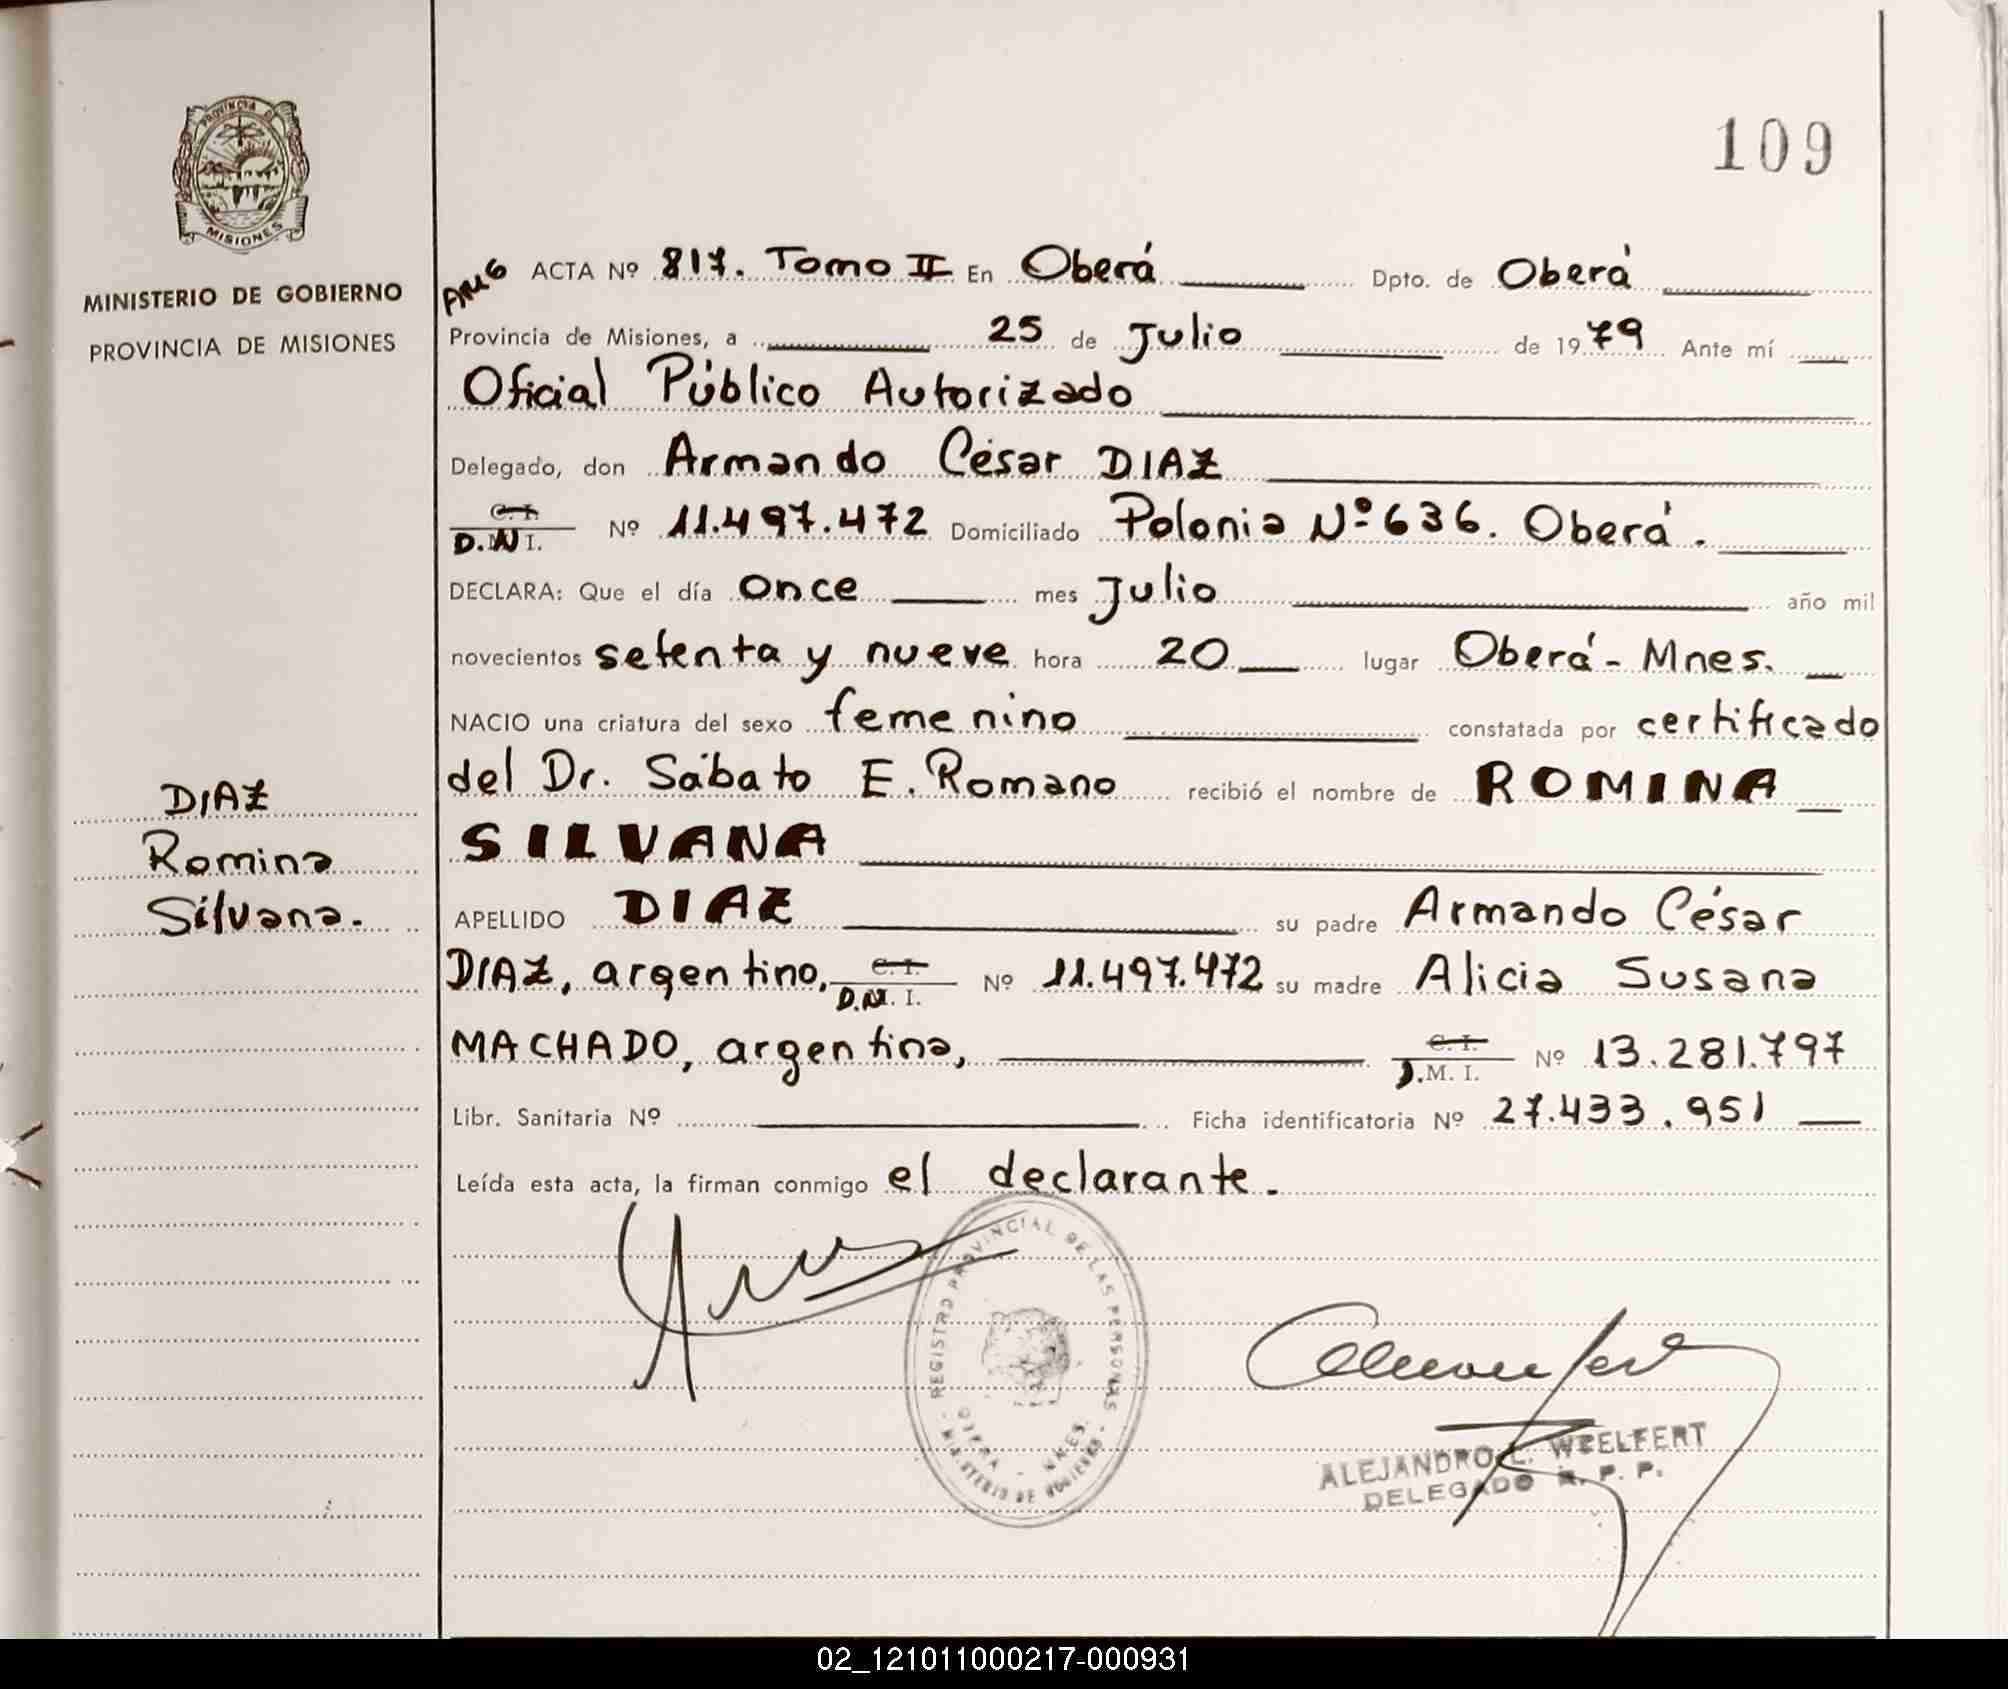 109
PROVINCIA DE
MISIONES
MINISTERIO DE GOBIERNO
PROVINCIA DE MISIONES
DIAZ
Romina
Silvana.
ACTA Nº 817. Tomo II En Oberá Dpto. de Oberá
Provincia de Misiones, a 25 de Julio de 1979 Ante mí
Oficial Público Autorizado
Delegado, don Armando César DIAZ
C. I.
D.N I. Nº 11.497.472 Domiciliado Polonia Nº 636. Oberá.
DECLARA: Que el día once mes Julio año mil
novecientos setenta y nueve hora 20 lugar Oberá - Mnes.
NACIO una criatura del sexo femenino constatada por certificado
del Dr. Sábato E. Romano recibió el nombre de ROMINA
SILVANA
APELLIDO DIAZ su padre Armando César
DIAZ, argentino, C. I. D.N. I. Nº 11.497.472 su madre Alicia Susana
MACHADO, argentina, C. I. D.M. I. Nº 13.281.797
Libr. Sanitaria Nº Ficha identificatoria Nº 27.433.951
Leída esta acta, la firman conmigo el declarante.
REGISTRO PROVINCIAL DE LAS PERSONAS
OBERA - MNES.
MINISTERIO DE GOBIERNO
ALEJANDRO L. WEELFERT
DELEGADO R. P. P.
02_121011000217-000931